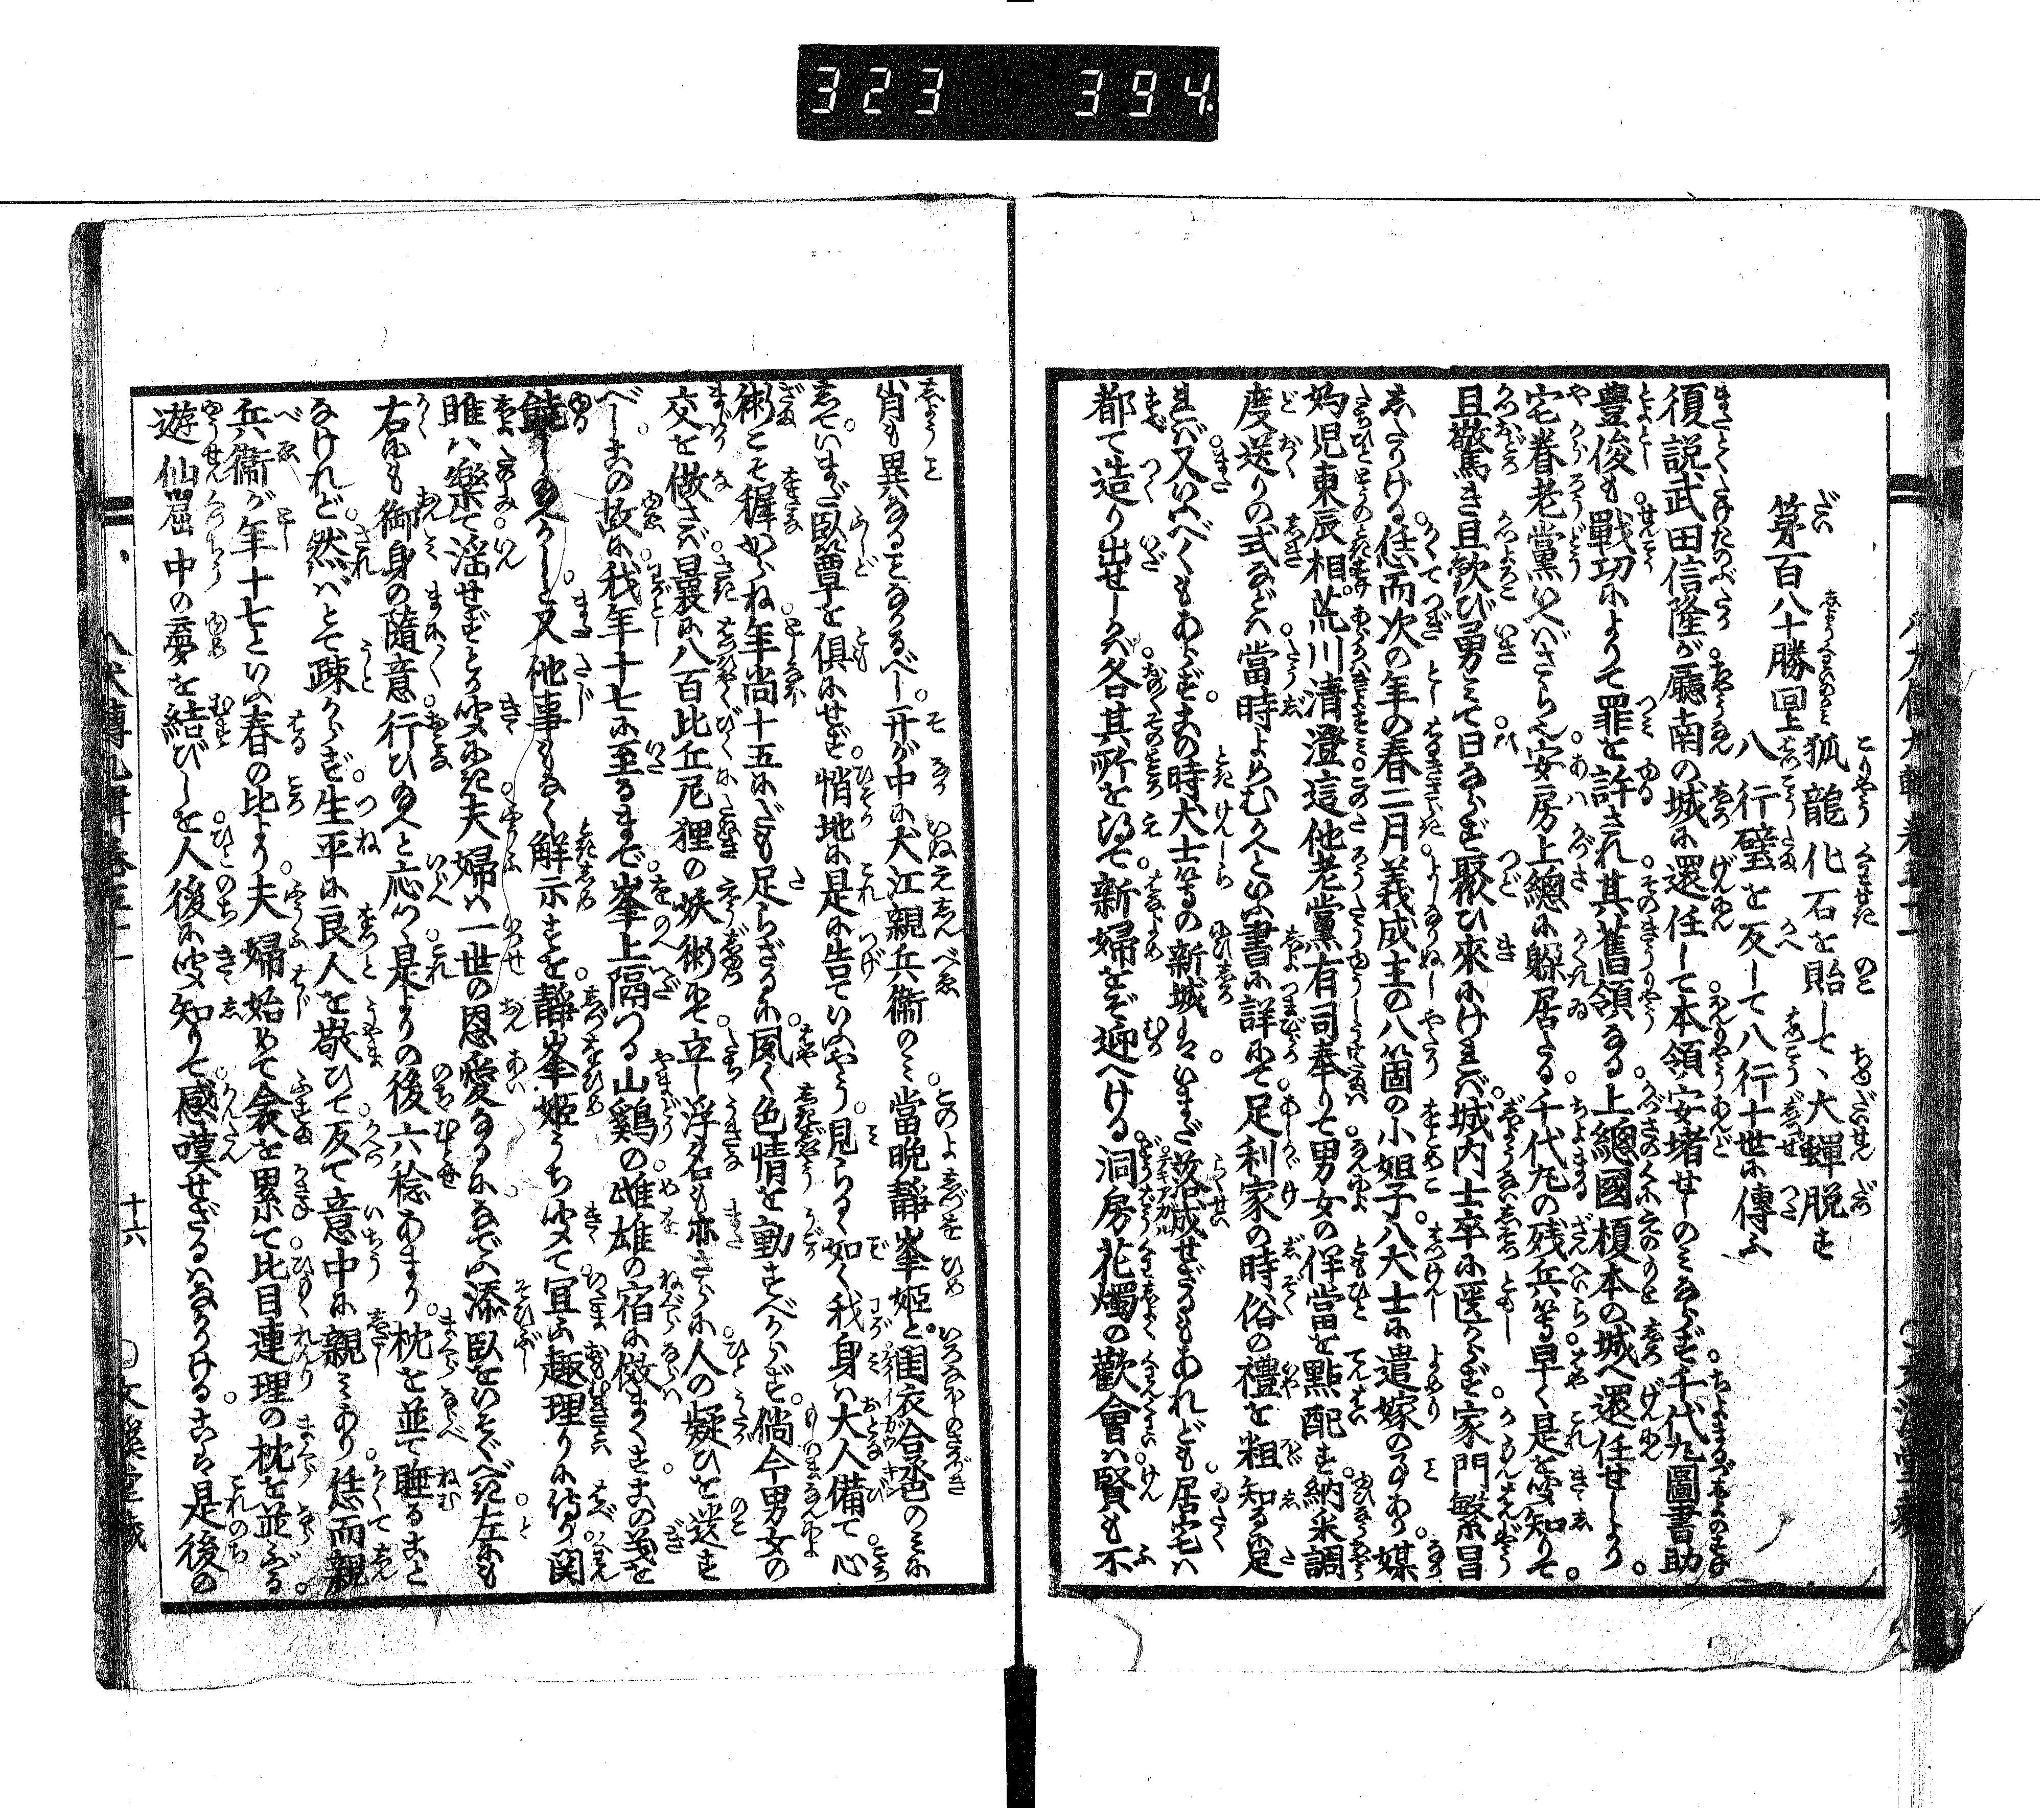 323 394
第百八十勝回上
狐龍化石を貽して、大蟬脱す
八行璧を反して八行十世に傳ふ
復説武田信隆が廳南の城に還任して本領安堵せしのミならず千代丸圖書助
豊俊も戰功によりて罪を許され其舊領なる上總國榎本の城へ還任せしより
宅眷老黨いへばさら也安房上總に躱居たる千代丸の残兵等早く是を笅知りて
且驚き且歓び勇ミて日ならず聚ひ來にければ城内士卒に匱からず家門繁昌
したりける恁而次の年の春二月義成主の八箇の小姐子八犬士に遣嫁の
妁児東辰相荒川清澄這他老黨有司奉りて男女の佯當を點配す納米調
度送りの式などハ當時よめむかへといふ書に詳にて足利家の時俗の禮を粗知るに足
れバ又いふべくもあらずこの時犬士等の新城ハいまだ落成せざるもあれども居宅ハ
都て造り出せしかバ各其所を得て新婦をぞ迎へける洞房花燭の歡會ハ賢も不
肖も異なることなかるべし开が中に犬江親兵衛のミ當晩静峯姫と閨衣合巹のミに
して。いまだ臥簟を倶にせず悄地に是に告ていふやう見らるゝ如く我身ハ大人備て心
術こそ穉からね年尚十五にだも足らざるに夙く色情を動すべからず倘今男女の
交を做さバ曩に八百比丘尼狸の妖術にて立し浮名も亦さらに人の疑ひを送す
べしこの故に我年十七に至るまで峯上隔つる山鷄の雌雄の宿に做まくすこの義を
饒し給へかしと又他事もなく解示すを静峯姫うち笅て宜ふ趣理りに侍り関
雎ハ樂て淫せずとか笅にき夫婦ハ一世の恩愛なるになでふ添臥をいそぐべき左にも
右にも御身の隨意行ひ給へと応つゝ是よりの後六稔あまり枕を並て睡ること
なけれど然バとて疎からず生平に良人を敬ひて反て意中に親ミあり恁而親
兵衛が年十七といふ春の比より夫婦始めて衾を累て比目連理の枕を並ぶる
遊仙窟中の夢を結びしを人後に笅知りて感嘆せざるハなかりけるこゝに是後の
十六